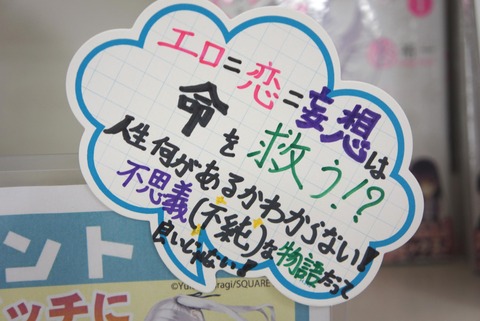 エロ=恋=妄想は
命を救う!?
人生何があるかわからない!
不思議(不純)な物語だって
良いじゃない!!
ント
ッチに
SQUARE